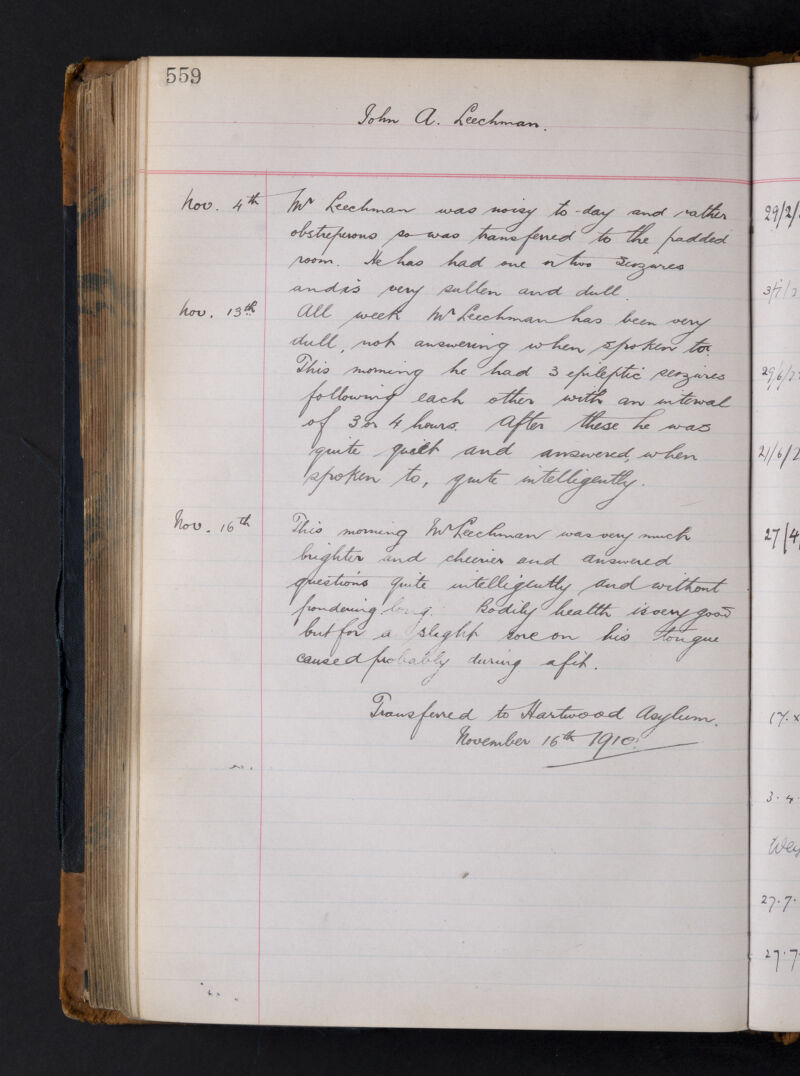 559
John A. Leechman.
Nov. 4th Mr Leechman was noisy to-day and rather
obstreperous so was transferred to the padded
room. He has had one or two seizures
and is very sullen and dull.
Nov. 13th All week Mr Leechman has been very
dull, not answering when spoken to.
This morning he had 3 epileptic seizures
following each other with an interval
of 3 or 4 hours. After these he was
quite quiet and answered, when
spoken to, quite intelligently.
Nov. 16th This morning Mr Leechman was very much
brighter and cheerier and answered
questions quite intelligently and without
pondering long. Bodily health is very good
but for a slight sore on his tongue
caused probably during a fit.
Transferred to Hartwood Asylum.
November 16th 1910.
29/2/
3/7/2
29/6/2
21/6/2
27/4
17. x
3. 4.
Wey
27.7.
27.7